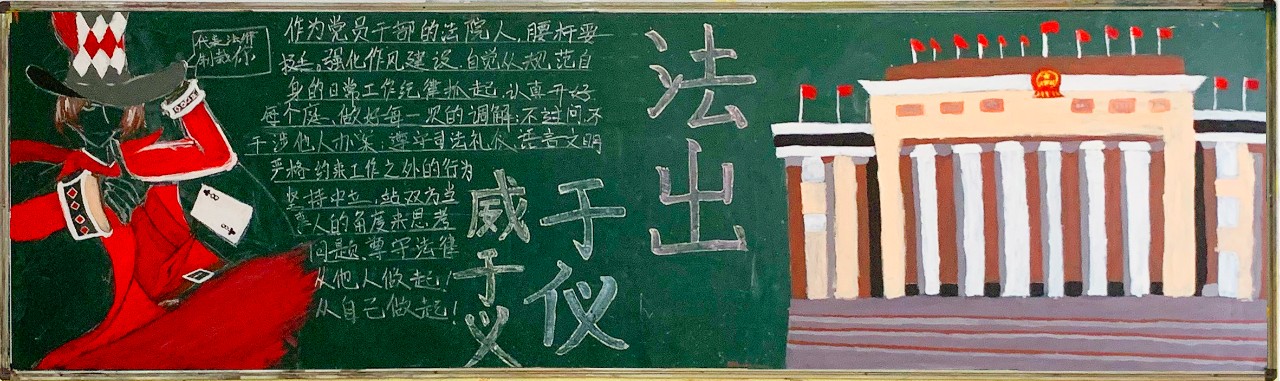 代表法律
制裁你
作为党员干部的法院人，腰杆要
挺。强化作风建设，自觉从规范自
身的日常工作纪律抓起，认真开好
每个庭、做好每一次的调解；不过问不
干涉他人办案；尊守司法礼仪，语言文明
严格约束工作之外的行为
坚持中立，站双为当
事人的角度来思考
问题，尊守法律
从他人做起！
从自己做起！
法出
于仪
威于义